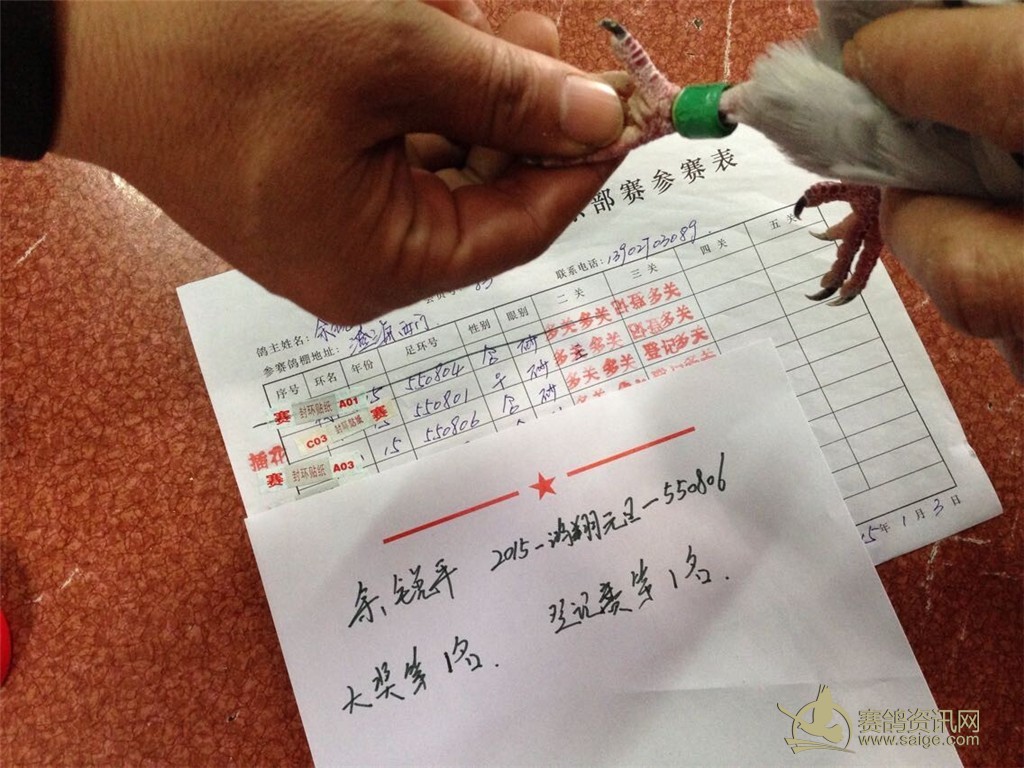 部赛参赛表
联系电话:13902703089
鸽主姓名:余
参赛鸽棚地址:澄海西门
序号 环名 年份 足环号 性别 眼别 二关 三关 四关 五关
赛 封环贴纸 A01 15 550804 合 砂 多关 多关 多关
C03 封环贴纸 赛 550801 合 砂 多关 多关 登记多关
插花
赛 封环贴纸 A03 15 550806 合
年1月3日
余锐平 2015-鸿翔元旦-550806
大奖第1名. 登记赛第1名.
赛鸽资讯网
www.saige.com